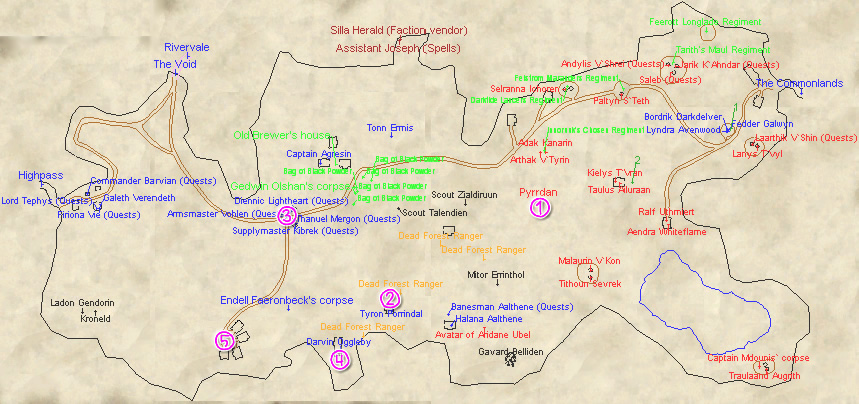 Feerott Longlegs Regiment
Silla Herald (Faction vendor)
Rivervale
Assistant Joseph (Spells)
Tanth's Maul Regiment
The Void
Andylis V'Shrei (Quests)
Jarik K'Ahndar (Quests)
Saleb (Quests)
The Commonlands
Selranna Ionoren
Paltyn S'Teth
Bordrik Darkdelver
Fedder Galwyn
Tonn Ermis
Lyndra Avenwood
Innoruuk's Chosen Regiment
Old Brewer's house
Laarthik V'Shin (Quests)
Adak Kanarin
Captain Agresin
Lanys T'vyl
Bag of Black Powder
Arthak V'Tyrin
Bag of Black Powder
Bag of Black Powder
2
Highpass
Kielys T'vran
Commander Barvian (Quests)
Gedwyn Olshan's corpse
Bag of Black Powder
Taulus Alluraan
Pyrrdan
Lord Tephys (Quests)
Galeth Verendeth
Diennic Lightheart (Quests)
Bag of Black Powder
Scout Zialdiruun
1
Armsmaster Vohlen (Quests)
3
Scout Talendien
Ralf Uthmiert
Emanuel Mergon (Quests)
Supplymaster Kibrek (Quests)
Aendra Whiteflame
Dead Forest Ranger
Dead Forest Ranger
Malaurin V'Kon
Mitor Errinthol
Dead Forest Ranger
Tithourl Sevrek
Ladon Gendorin
Endell Faeronbeck's corpse
2
Banesman Aalthene (Quests)
Kroneld
Tyron Forrindal
Halana Aalthene
Dead Forest Ranger
Avatar of Andane Ubel
5
Darvin Oggleby
Gavard Belliden
4
Captain Mdounis` corpse
Traulaand Augnth